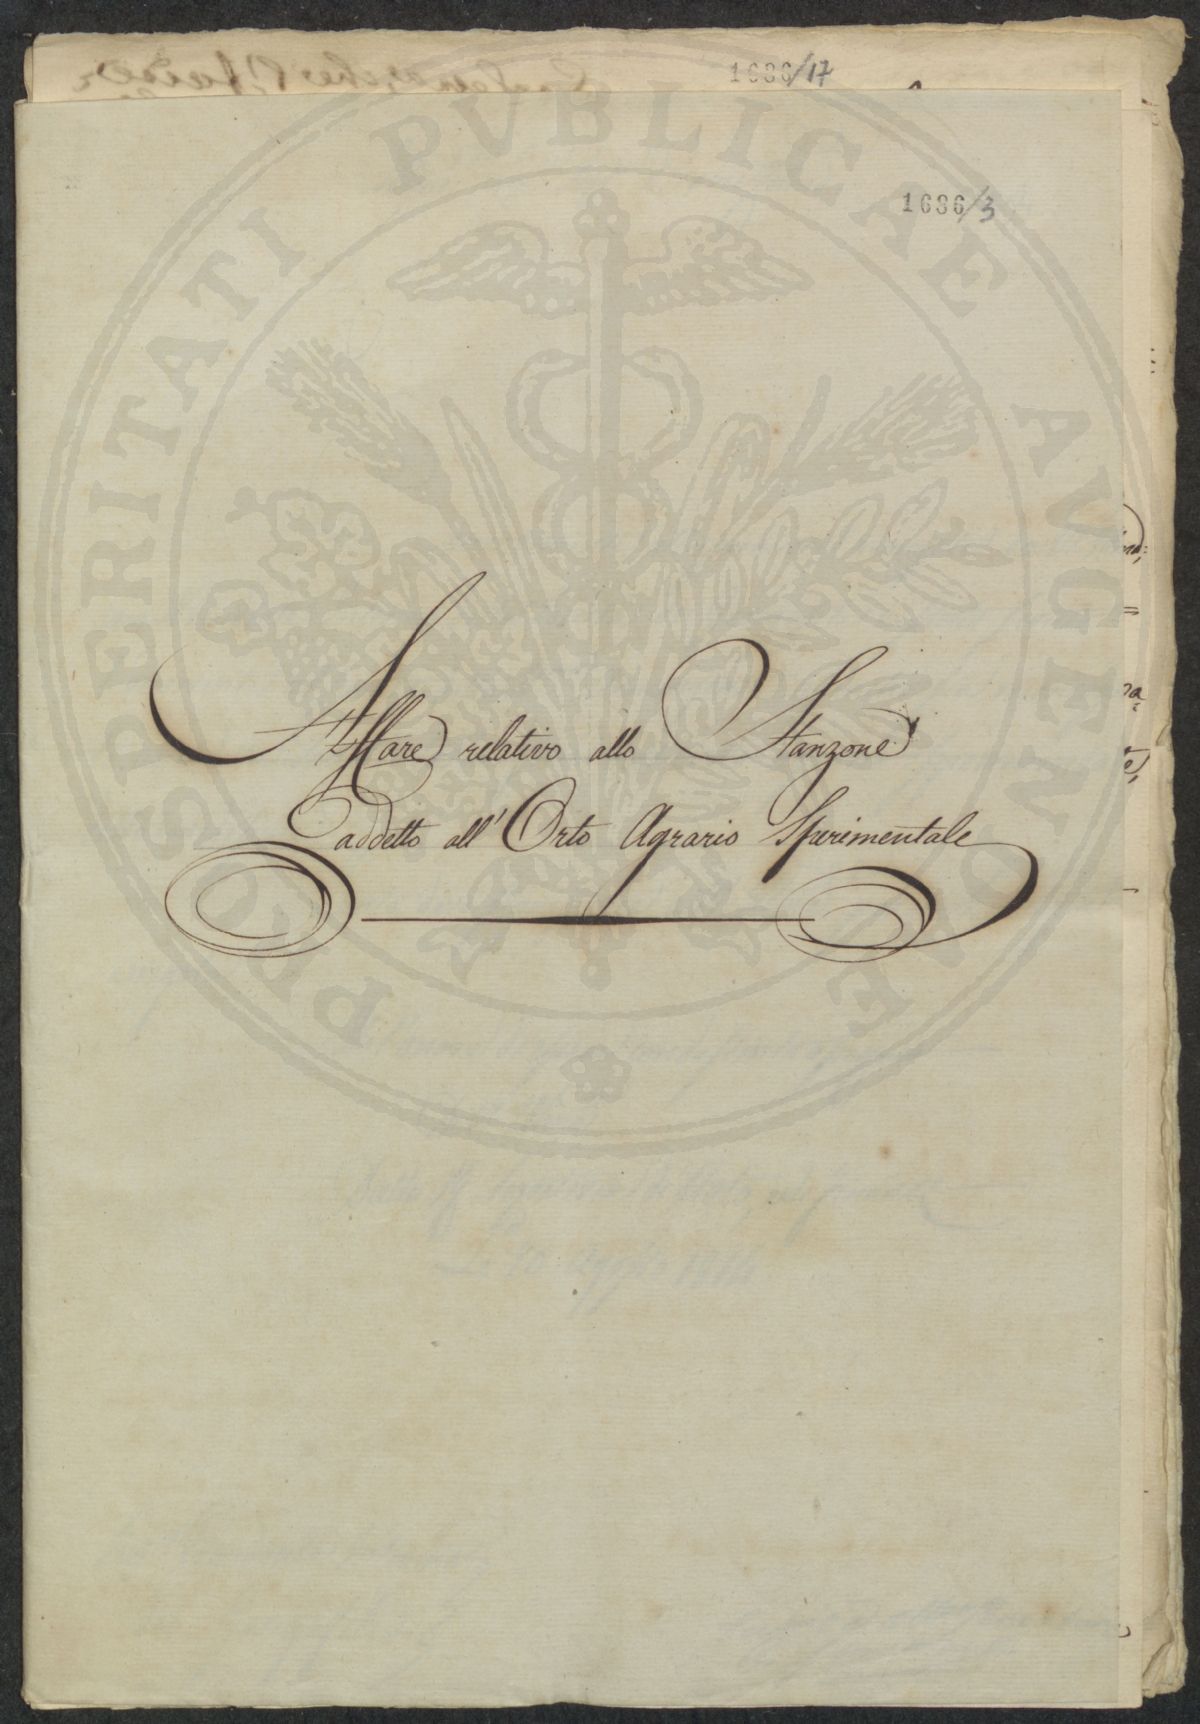 1686/17
1686/3
PROSPERITATI PVBLICAE AVGENDAE
Affare relativo allo Stanzone
addetto all' Orto Agrario Sperimentale